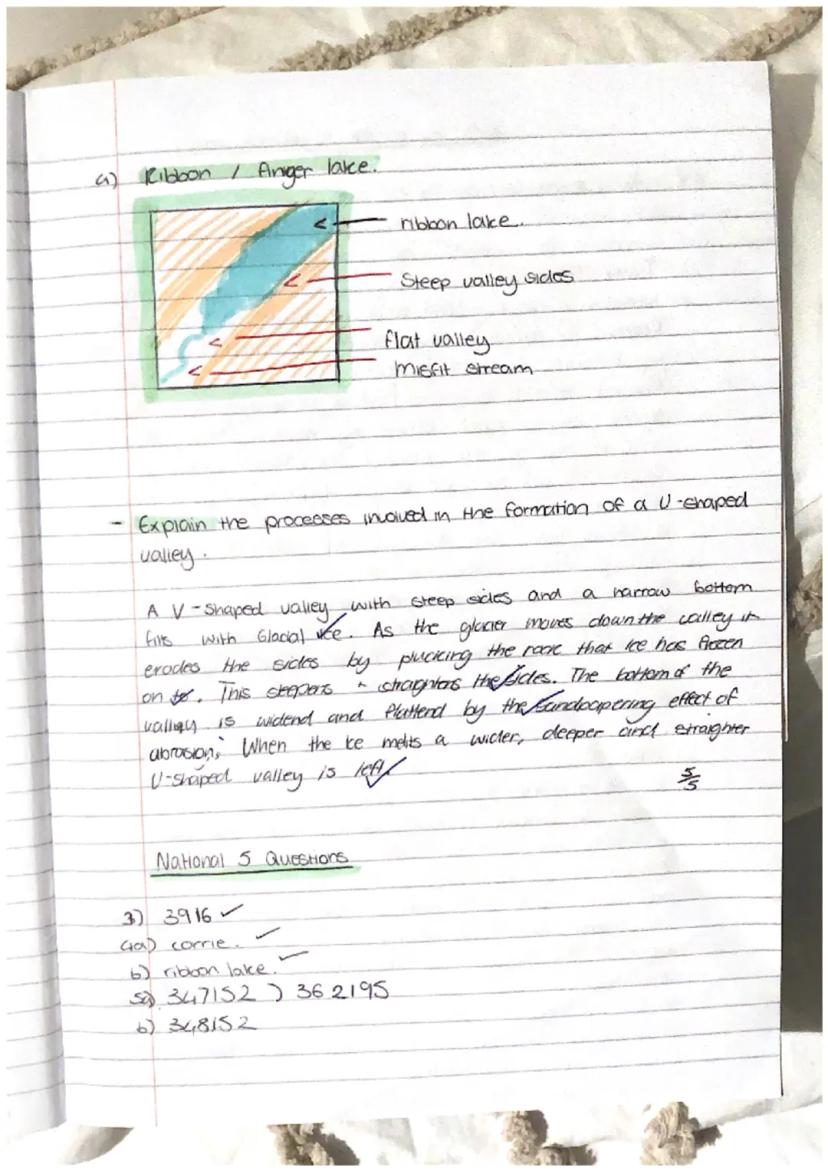 a) Ribbon / Anger lake.
ribbon lake.
Steep valley sides
flat valley
misfit stream
- Explain the processes involved in the formation of a U-shaped
valley.
A V-shaped valley with steep sides and a narrow bottom
fills with Glacial ice. As the glacier moves down the valley it
erodes the sides by plucking the rock that ice has frozen
on to. This steepens + straightens the sides. The bottom of the
valley is widend and flattend by the Sandpapering effect of
abrasion. When the ice melts a wider, deeper and straighter
U-shaped valley is left.
5/5
National 5 Questions
3) 3916
4a) corrie.
b) ribbon lake.
5a) 347152 ) 362195
b) 348152